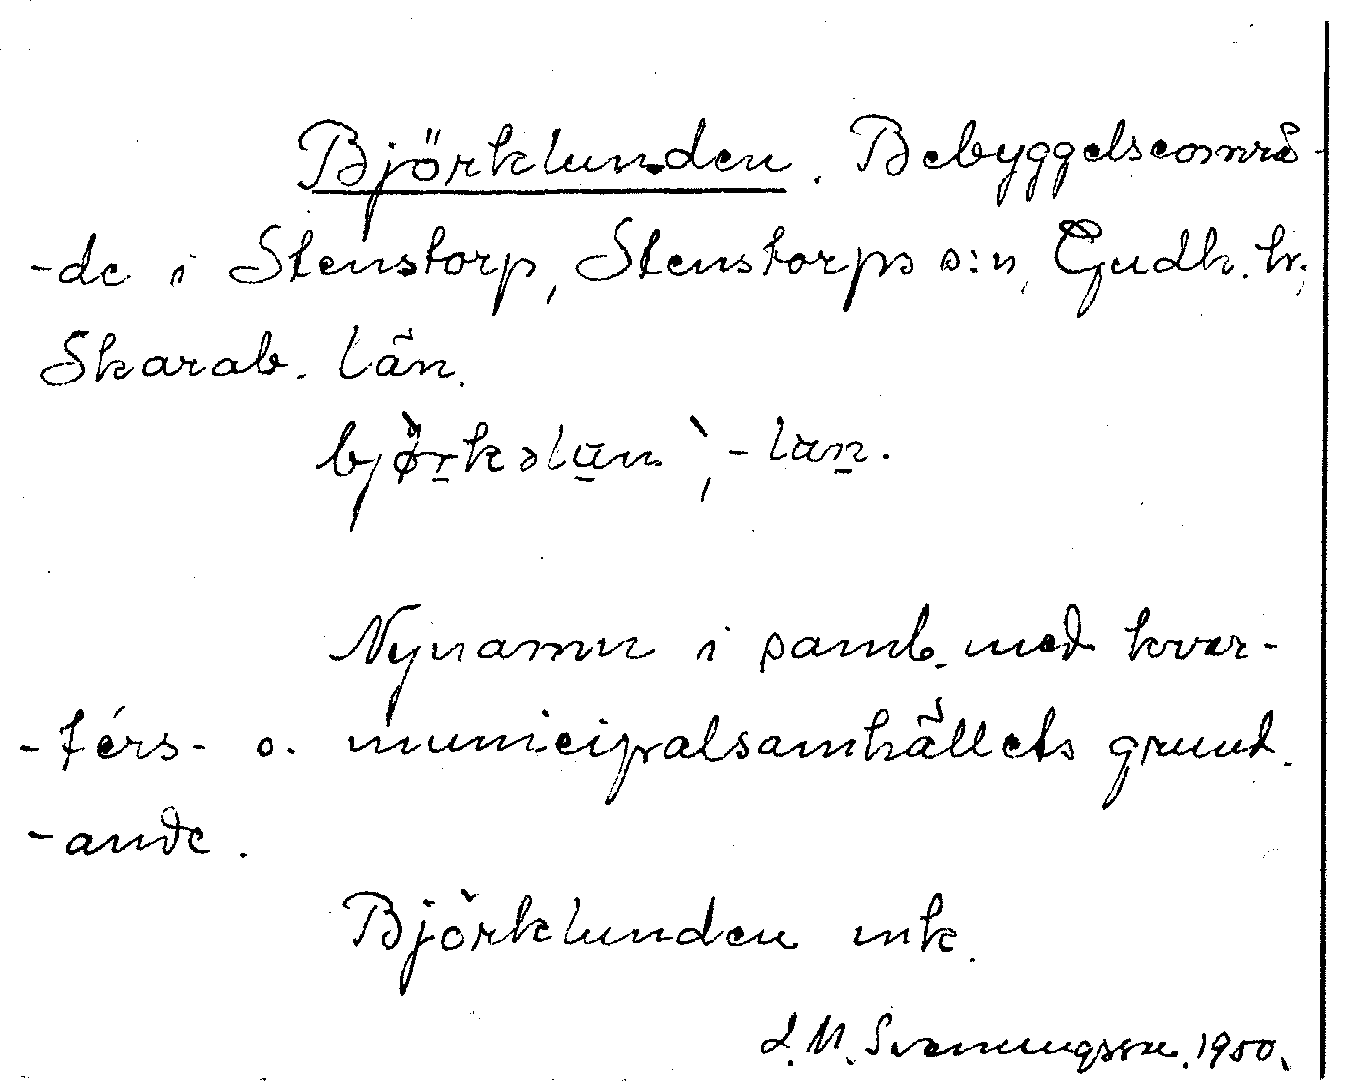 Björklunden. Bebyggelseområ-
-de i Stenstorp, Stenstorps s:n, Gudh. hr.,
Skarab. län.
bjò̈rkəlun`, -lun.
Nynamn i samb. med kvar-
-térs- o. municipalsamhällets grund-
-ande.
Björklunden mk.
L. M. Svenungsson. 1950.